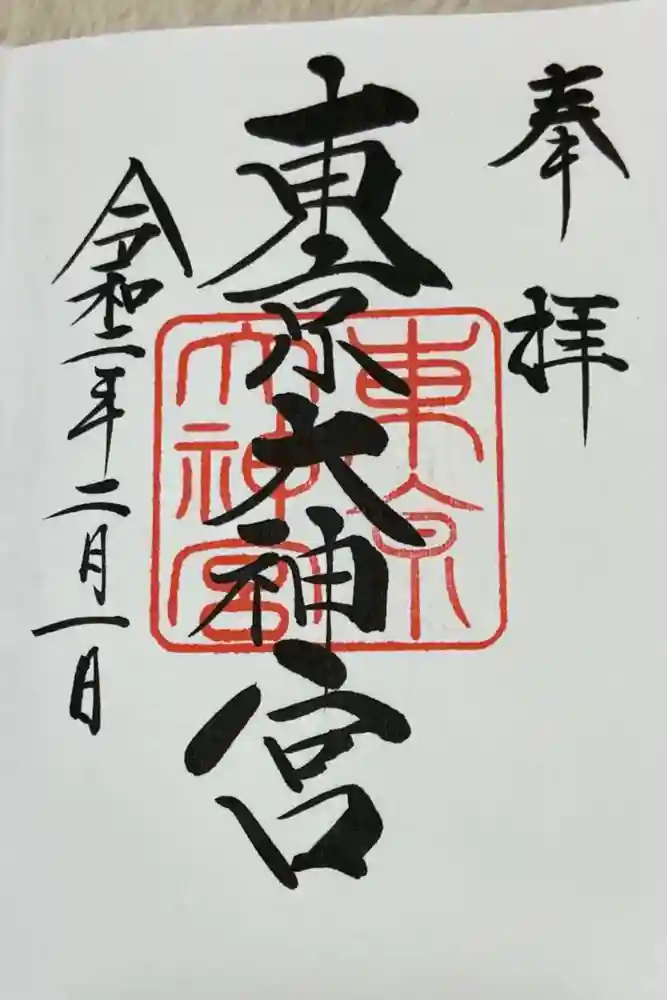 奉拝
東京大神宮
東京
大神宮
令和二年二月一日